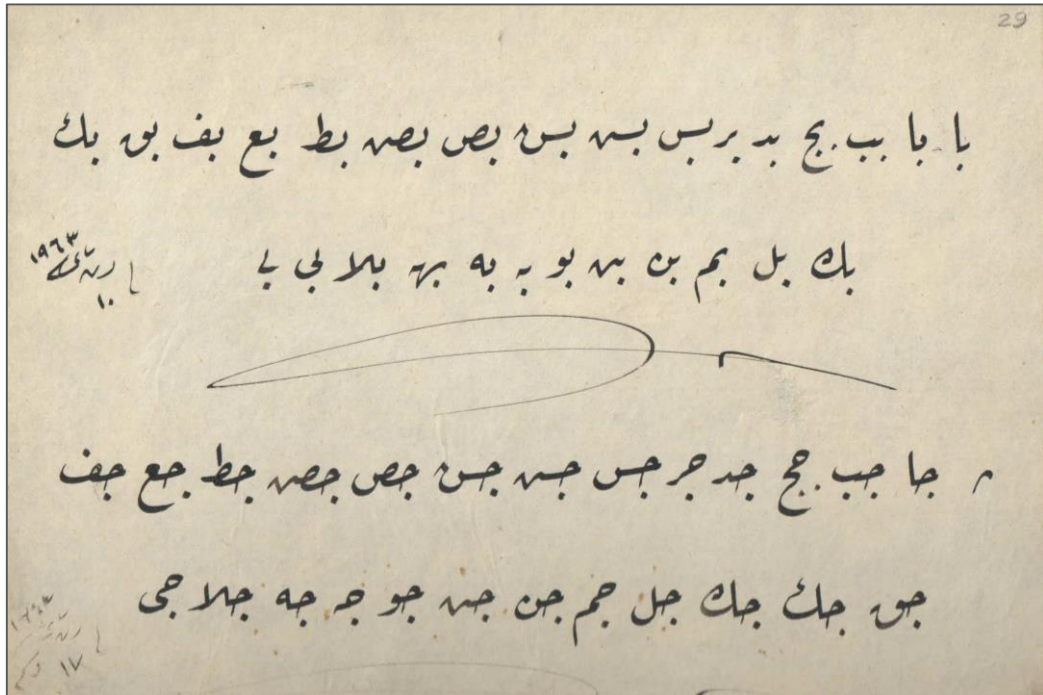 29
با با بب بج بد بر بس بسـ بس بص بصـ بط بع بف بق بك
بك بل بم بن بنـ بو بـه به بهـ بلا بى بے
١٩٦٣
١٠
جا جب جج جد جر جس جسـ جس جص جصـ جط جع جف
جق جك جك جل جم جن جنـ جو جـه جه جلا جى
١٧